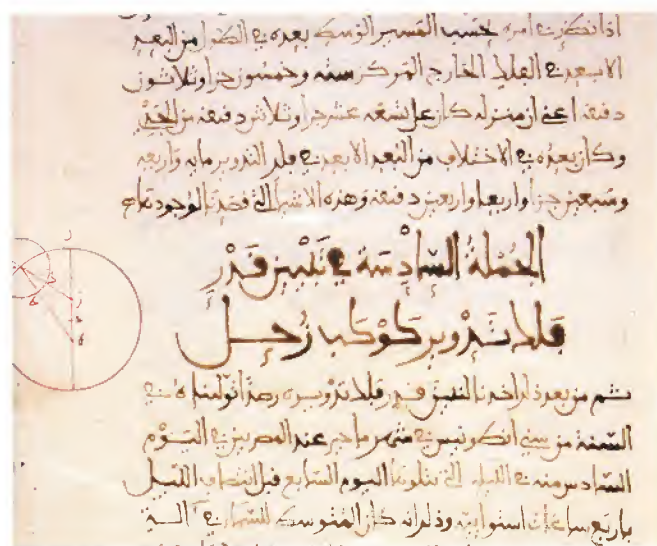 اذا نظر في امره بحسب المسير الوسط بعده في الطول من البعد
الابعد في الفلك الخارج المركز ستة وخمسون جزا وثلاثون
دقيقة اعني ان منزله كان على تسعة عشر جزا وثلاثين دقيقة من الجدي
وكان بعده في الاختلاف من البعد الابعد في فلك التدوير مايه واربعه
وسبعين جزا واربعا واربعين دقيقة وهذه الاشيا التي قصدنا لوجودها
الجُملةُ السّادِسَة في تَبْيين قَدْرِ
فلك تَدْوير كَوْكَب زُحَل
ثم من بعد ذلك اخذنا لتبيين قدر فلك تدويره رصدا تولينا في
السنة من سني انطونينس في شهر ماخير عند المصريين في اليَوْم
السّادس منه في الليلة التي يتلوها اليوم السّابع قبل انتصاف الليل
باربع ساعات استوائية وذلك انه كان المتوسط للسّما في الالة